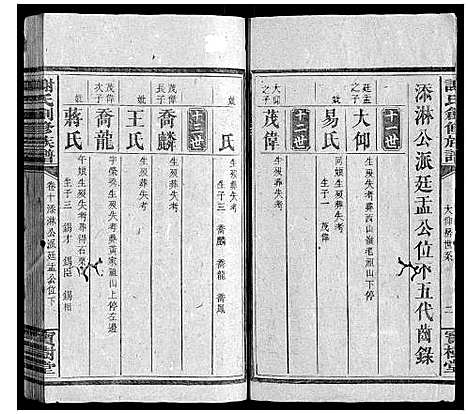 謝氏創修族譜
大仰房世系
二
寶樹堂
添淋公派廷盂公位下五代齒錄
十一世
廷盂之子
大仰
生歿失考葬西山嶺老瓶山下停
妣
易氏
生歿葬失考
生子一 茂偉
十二世
大仰之子
茂偉
生歿葬失考
妣
氏
生歿葬失考
生子三 喬麟 喬龍 喬鳳
十三世
茂偉長子
喬麟
生歿葬失考
妣
王氏
生歿葬失考
茂偉次子
喬龍
字榮 生歿失考葬黃家嶺山上停左邊
妣
蔣氏
午娘生歿失考尋得石
生子三 錫才 錫臣 錫相
謝氏創修族譜
卷十添淋公派廷盂公位下
寶樹堂